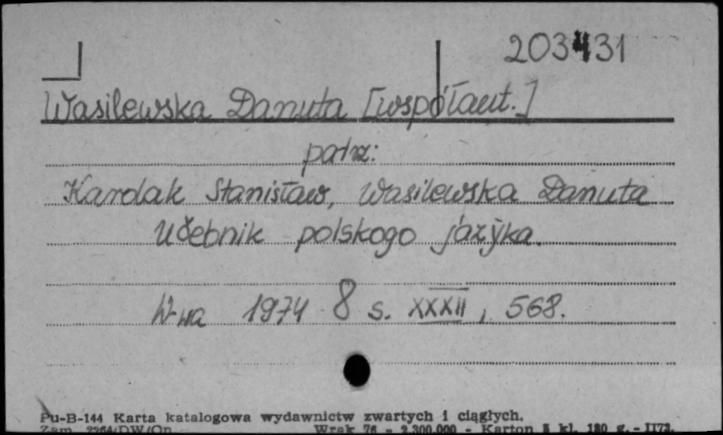 203431
Wasilewska Danuta [współaut.]
patrz:
Kardak Stanisław, Wasilewska Danuta
Učebnik polskogo jazyka.
W-wa 1974 8 s. XXXII, 568.
Pu-B-144 Karta katalogowa wydawnictw zwartych i ciągłych.
Zam. 2264/DW/On Wrak 76 - 2.300.000 - Karton 5 kl. 180 g. - 1173.